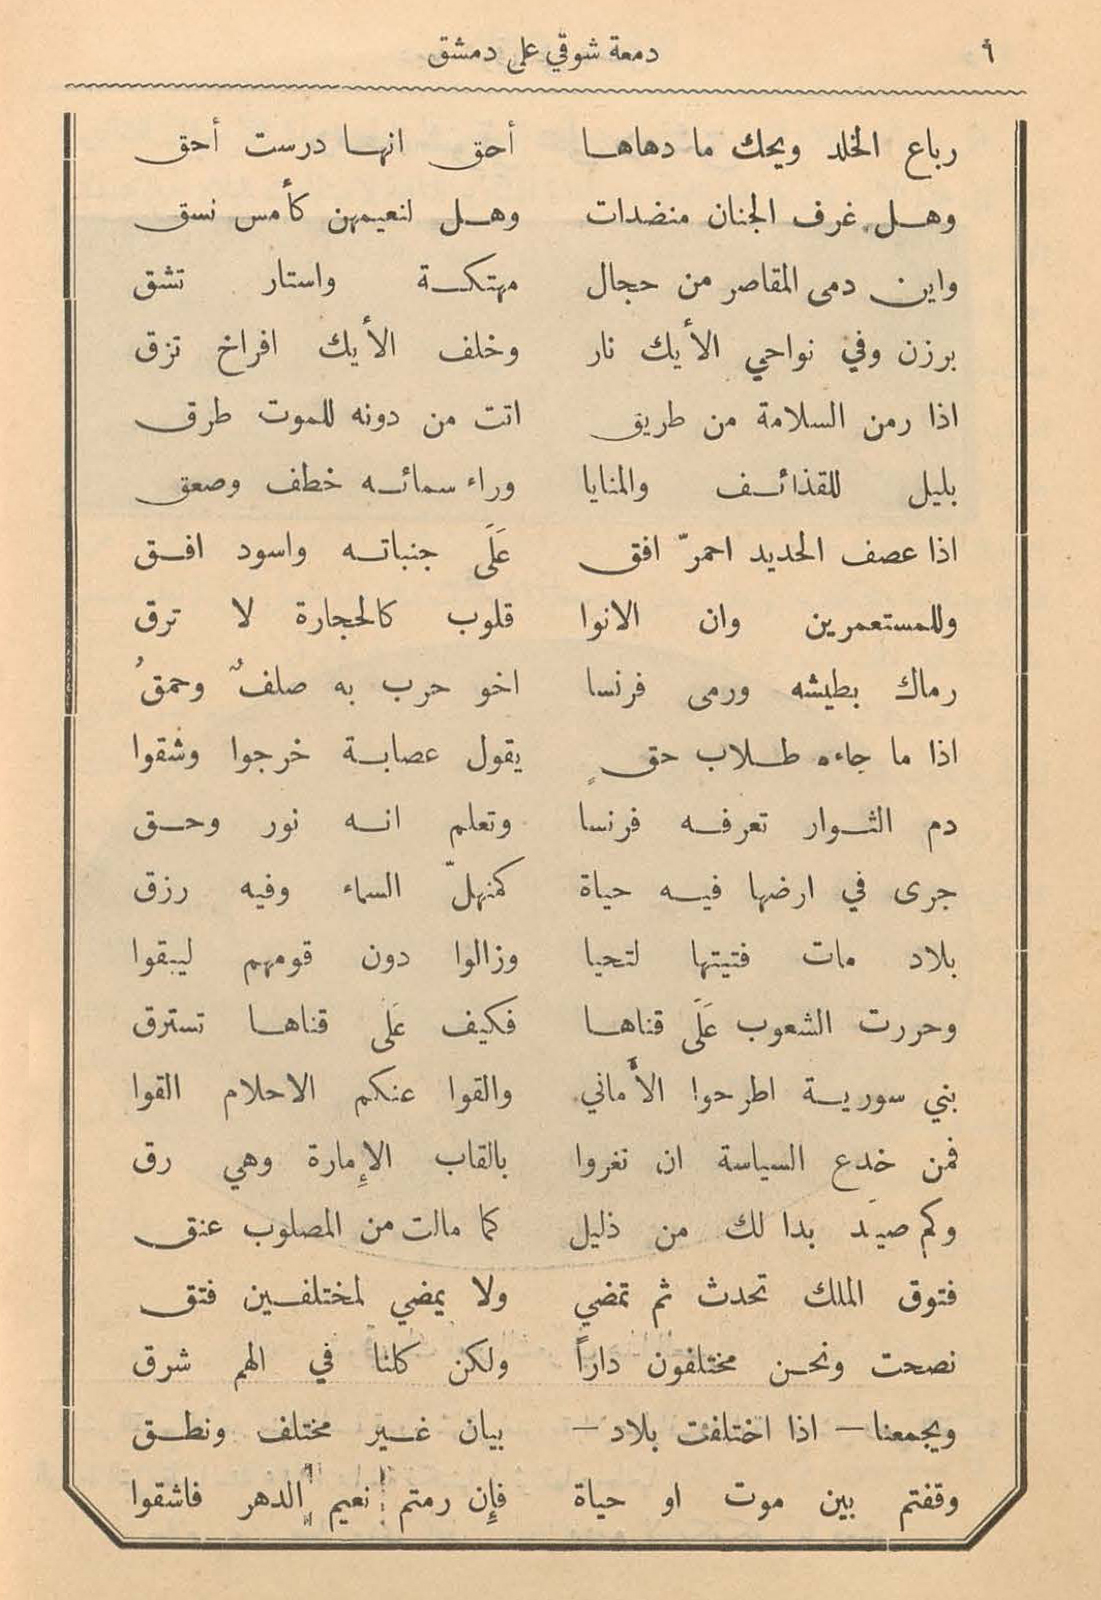 ٩ دمعة شوقي على دمشق
رباع الخلد ويحك ما دهاها أحق انها درست أحق
وهل غرف الجنان منضدات وهل لنعيمهن كأمس نسق
واين دمى المقاصر من حجال مهتكة واستار تشق
برزن وفي نواحي الأيك نار وخلف الأيك افراخ تزق
اذا رمن السلامة من طريق اتت من دونه للموت طرق
بليل للقذائف والمنايا وراء سمائه خطف وصعق
اذا عصف الحديد احمرّ افق عَلَى جنباته واسود افق
وللمستعمرين وان الانوا قلوب كالحجارة لا ترق
رماك بطيشه ورمى فرنسا اخو حرب به صلفٌ وحمقُ
اذا ما جاءه طلاب حقٍ يقول عصابة خرجوا وشقوا
دم الثوار تعرفه فرنسا وتعلم انه نور وحق
جرى في ارضها فيه حياة كمنهلّ السماء وفيه رزق
بلاد مات فتيتها لتحيا وزالوا دون قومهم ليبقوا
وحررت الشعوب عَلَى قناها فكيف عَلَى قناها تسترق
بني سورية اطرحوا الأماني والقوا عنكم الاحلام القوا
فمن خدع السياسة ان تغروا بالقاب الإمارة وهي رق
وكم صيَد بدا لك من ذليل كما مالت من المصلوب عنق
فتوق الملك تحدث ثم تمضي ولا يمضي لمختلفين فتق
نصحت ونحن مختلفون داراً ولكن كلنا في الهم شرق
ويجمعنا — اذا اختلفت بلاد — بيان غير مختلف ونطق
وقفتم بين موت او حياة فإن رمتم نعيم الدهر فاشقوا